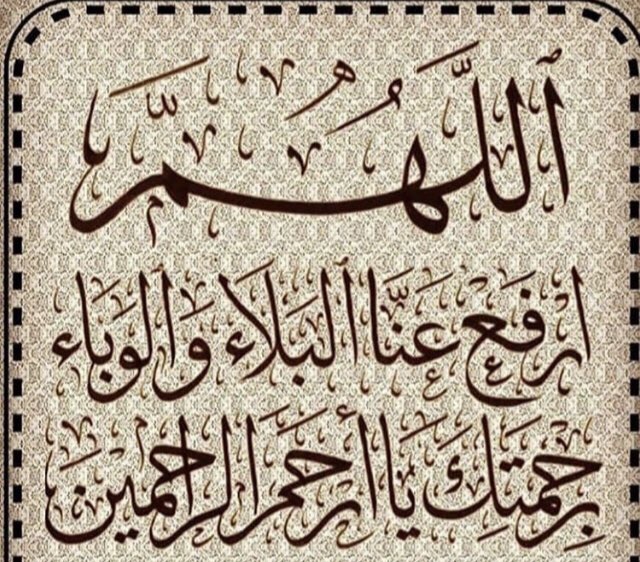 اللَّهُمَّ
ارفَعْ عَنَّا البَلَاءَ وَالوَبَاءَ
بِرَحْمَتِكَ يَا أَرْحَمَ الرَّاحِمِينَ